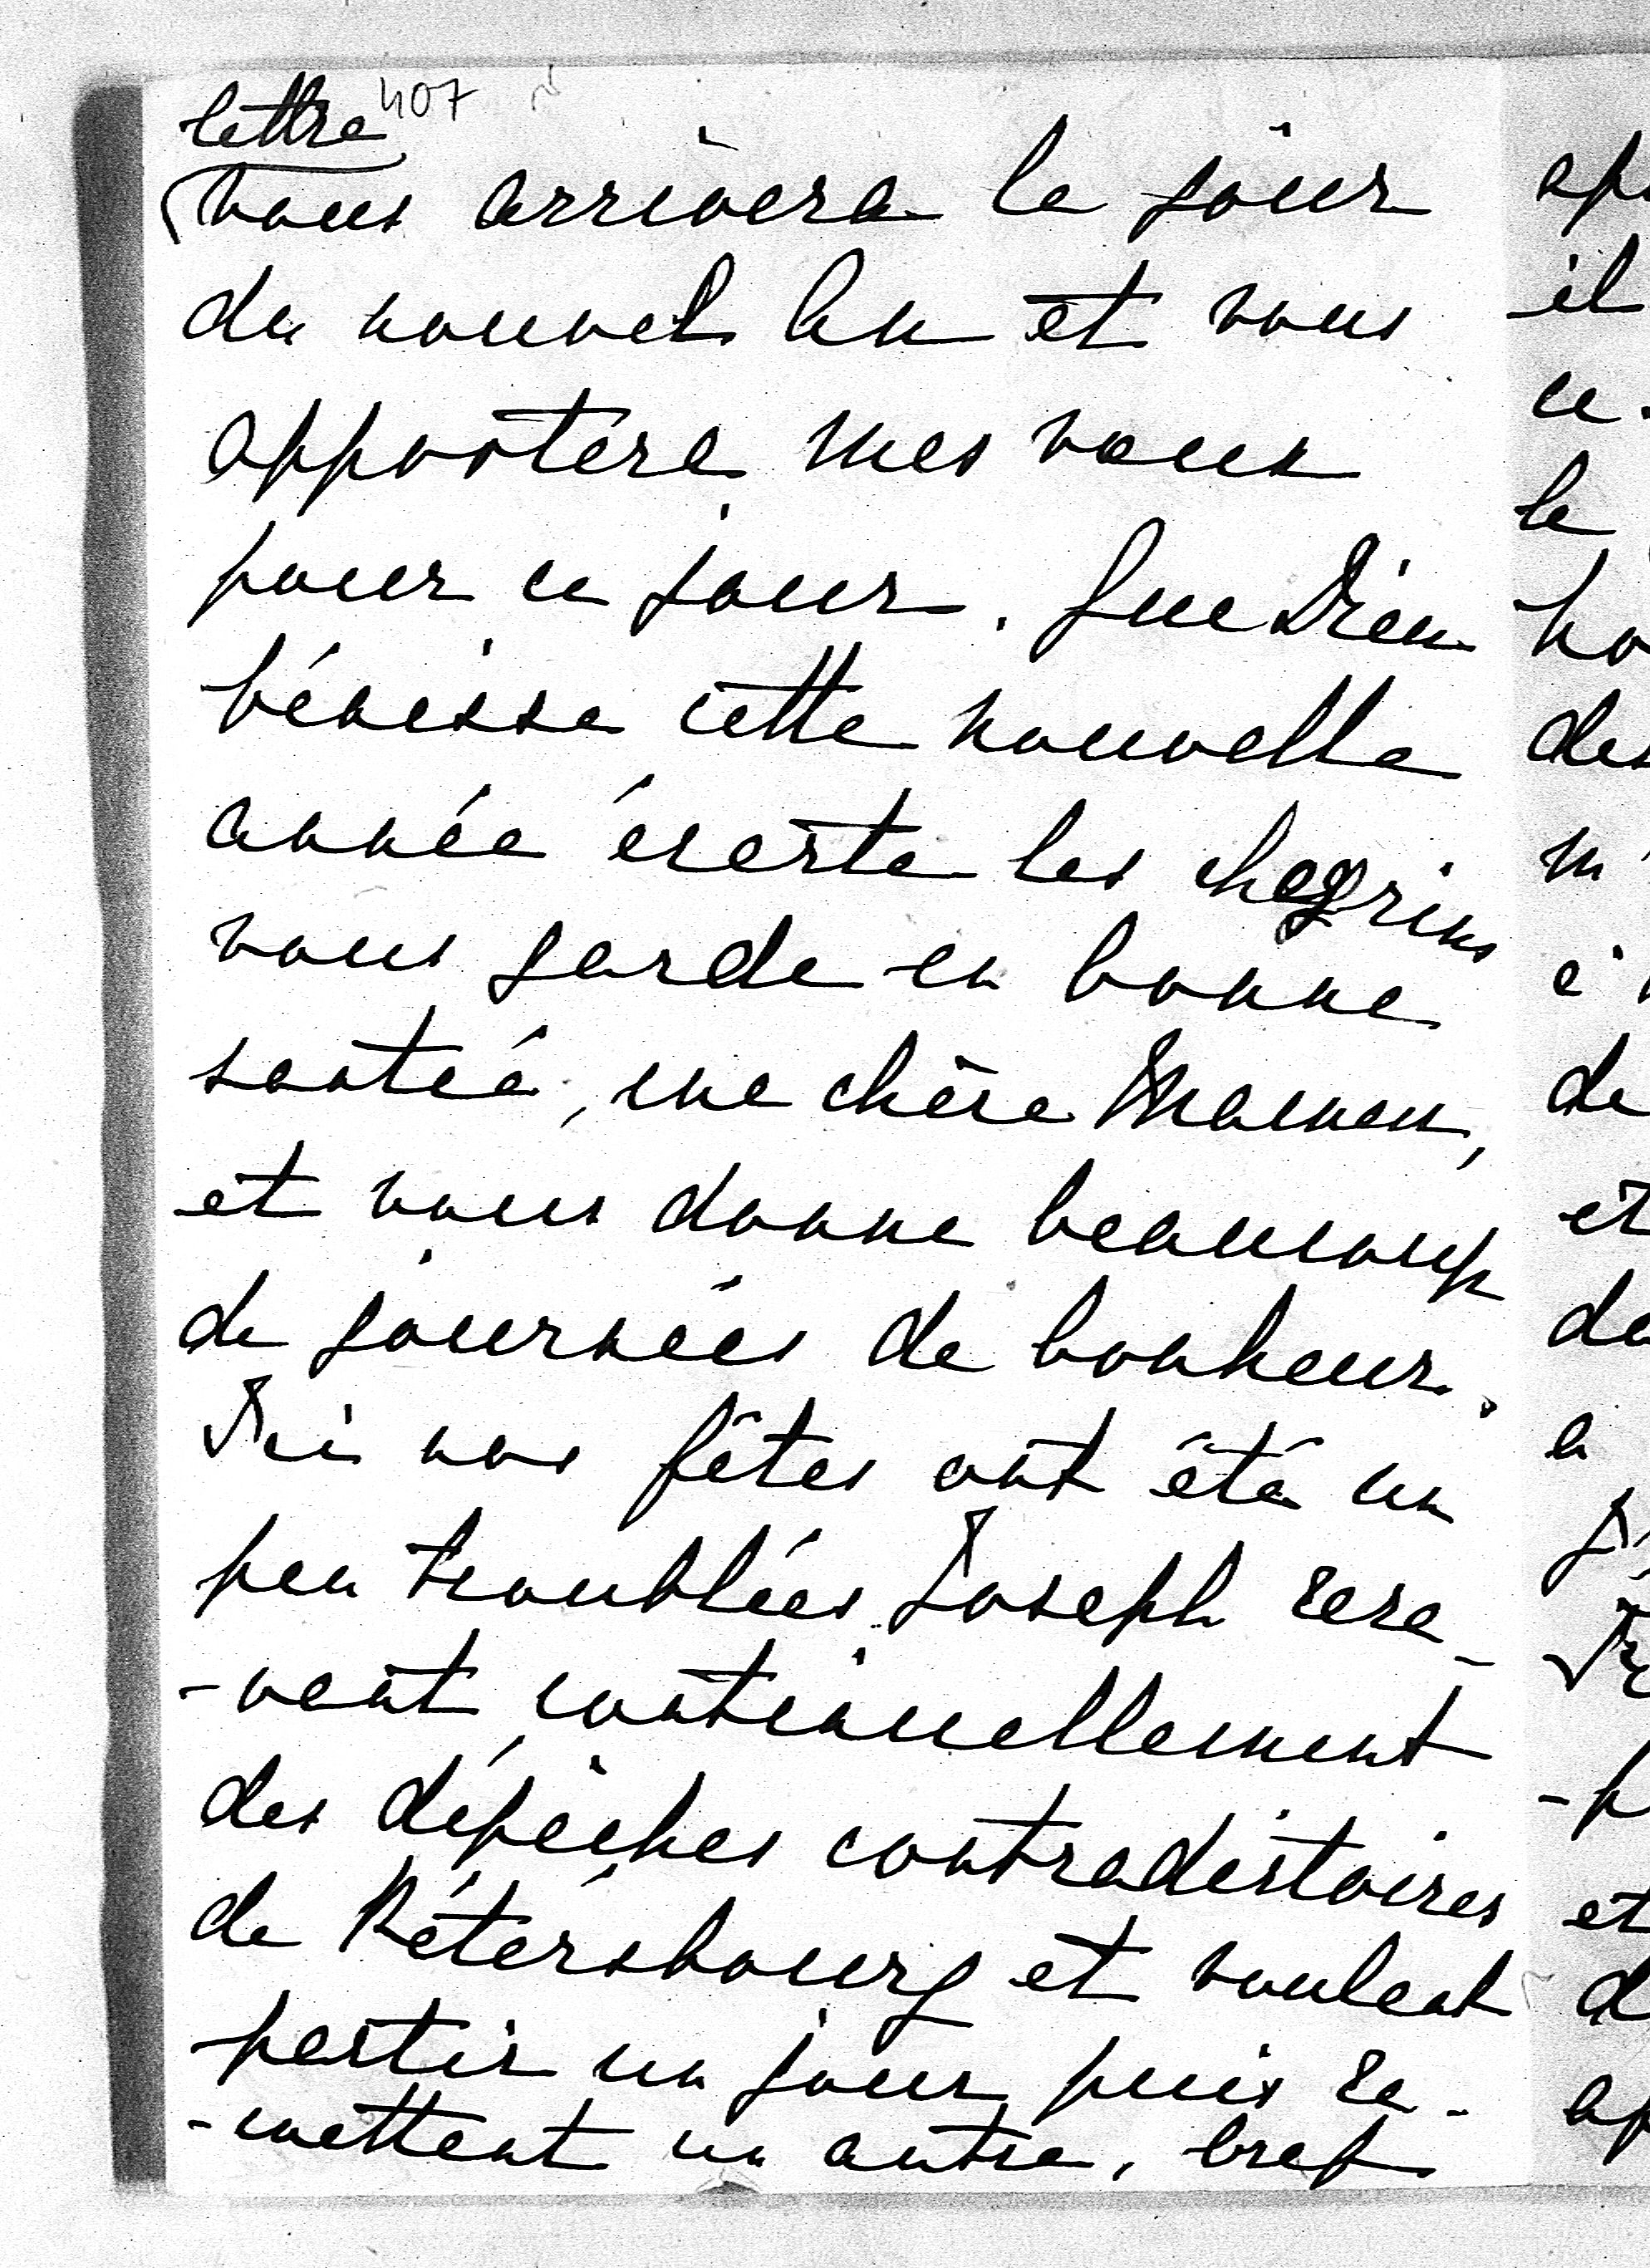 lettre 407
vous arrivera le jour
du nouvel an et vous
apportera mes vœux
pour ce jour. Que Dieu
bénisse cette nouvelle
année écarte les chagrins
vous garde en bonne
santée, ma chère Maman,
et vous donne beaucoup
de journées de bonheur.
Ici nos fêtes ont été un
peu troublées. Joseph rece-
-vant continuellement
des dépêches contradictoires
de Pétersbourg et voulant
partir un jour puis re-
-mettant un autre, bref